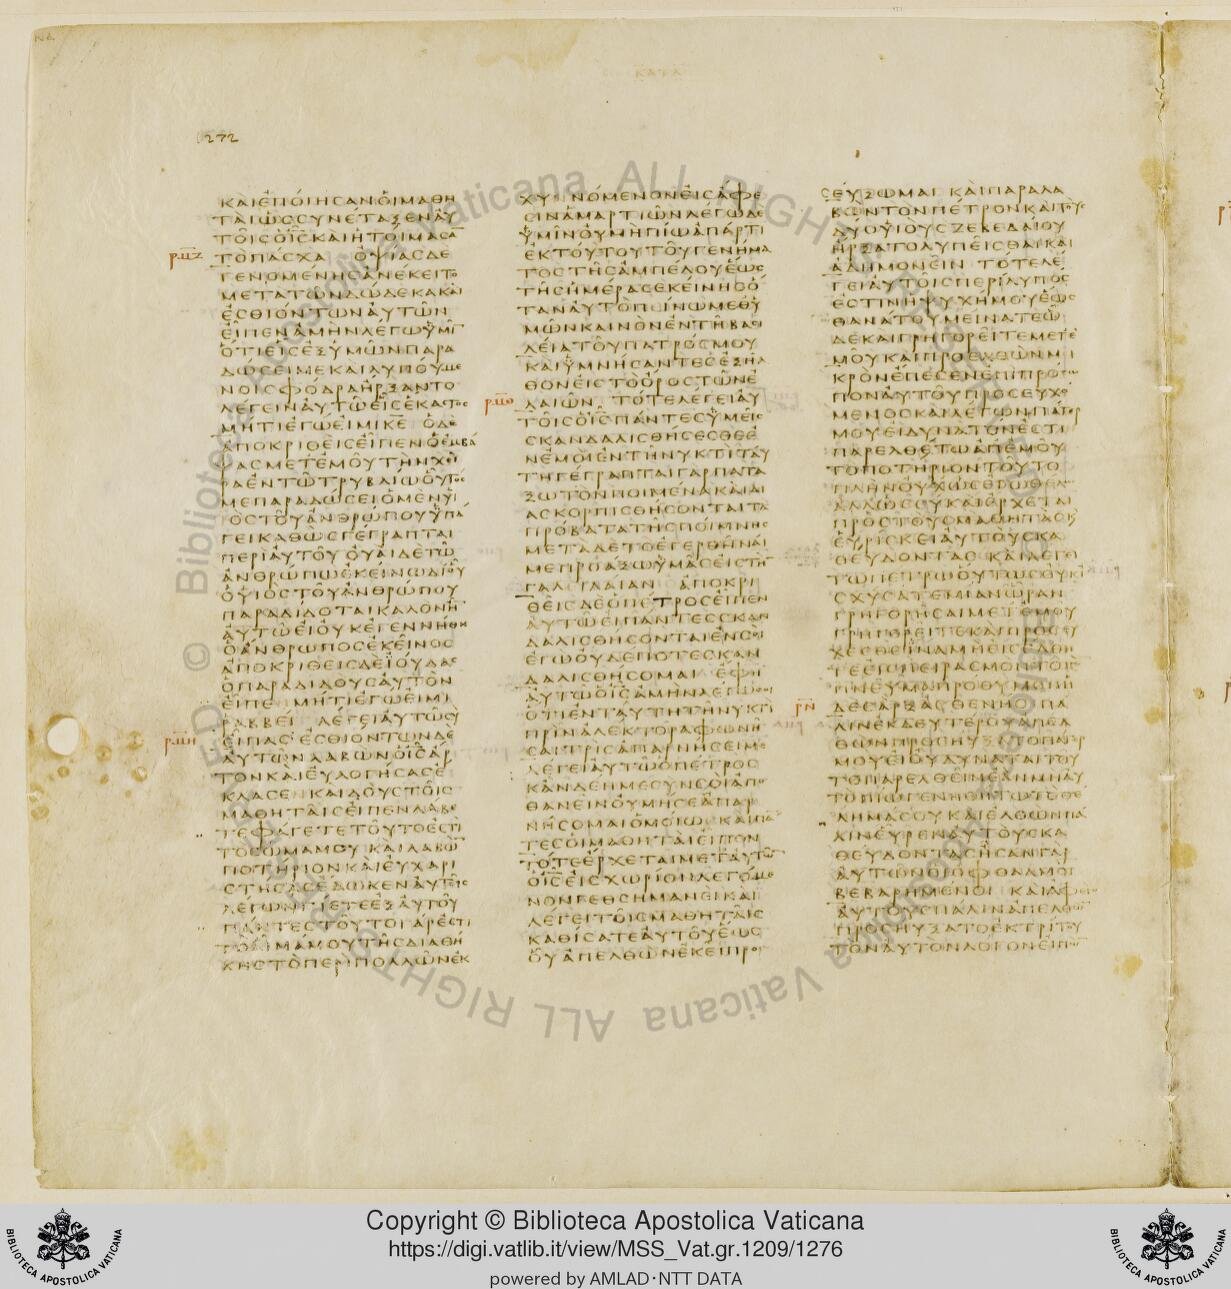 ΚΑΤΑ
1272
ΚΑΙ ΕΠΟΙΗϹΑΝ ΟΙ ΜΑΘΗ
ΤΑΙ ΩϹ ϹΥΝΕΤΑΞΕΝ ΑΥ
ΤΟΙϹ Ο ΙϹ ΚΑΙ ΗΤΟΙΜΑϹΑ̅
ΡΜΖ
ΤΟ ΠΑϹΧΑ ΟΨΙΑϹ ΔΕ
ΓΕΝΟΜΕΝΗϹ ΑΝΕΚΕΙΤΟ
ΜΕΤΑ ΤΩΝ ΔΩΔΕΚΑ ΚΑΙ
ΕϹΘΙΟΝΤΩΝ ΑΥΤΩΝ
ΕΙΠΕΝ ΑΜΗΝ ΛΕΓΩ ΥΜΙ̅
ΟΤΙ ΕΙϹ ΕΞ ΥΜΩΝ ΠΑΡΑ
ΔΩϹΕΙ ΜΕ ΚΑΙ ΛΥΠΟΥΜΕ
ΝΟΙ ϹΦΟΔΡΑ ΗΡΞΑΝΤΟ
ΛΕΓΕΙΝ ΑΥΤΩ ΕΙϹ ΕΚΑϹΤΟϹ
ΜΗΤΙ ΕΓΩ ΕΙΜΙ ΚΕ Ο ΔΕ
ΑΠΟΚΡΙΘΕΙϹ ΕΙΠΕΝ Ο ΕΜΒΑ
ΨΑϹ ΜΕΤ ΕΜΟΥ ΤΗΝ ΧΕΙ
ΡΑ ΕΝ ΤΩ ΤΡΥΒΛΙΩ ΟΥΤΟϹ
ΜΕ ΠΑΡΑΔΩϹΕΙ Ο ΜΕΝ ΥΙ
ΟϹ ΤΟΥ ΑΝΘΡΩΠΟΥ ΥΠΑ
ΓΕΙ ΚΑΘΩϹ ΓΕΓΡΑΠΤΑΙ
ΠΕΡΙ ΑΥΤΟΥ ΟΥΑΙ ΔΕ ΤΩ
ΑΝΘΡΩΠΩ ΕΚΕΙΝΩ ΔΙ ΟΥ
Ο ΥΙΟϹ ΤΟΥ ΑΝΘΡΩΠΟΥ
ΠΑΡΑΔΙΔΟΤΑΙ ΚΑΛΟΝ ΗΝ
ΑΥΤΩ ΕΙ ΟΥΚ ΕΓΕΝΝΗΘΗ
Ο ΑΝΘΡΩΠΟϹ ΕΚΕΙΝΟϹ
ΑΠΟΚΡΙΘΕΙϹ ΔΕ ΙΟΥΔΑϹ
Ο ΠΑΡΑΔΙΔΟΥϹ ΑΥΤΟΝ
ΕΙΠΕ ΜΗΤΙ ΕΓΩ ΕΙΜΙ
ΡΑΒΒΕΙ ΛΕΓΕΙ ΑΥΤΩ ϹΥ
ΡΜΗ
ΕΙΠΑϹ ΕϹΘΙΟΝΤΩΝ ΔΕ
ΑΥΤΩΝ ΛΑΒΩΝ Ο ΙϹ ΑΡ
ΤΟΝ ΚΑΙ ΕΥΛΟΓΗϹΑϹ Ε
ΚΛΑϹΕΝ ΚΑΙ ΔΟΥϹ ΤΟΙϹ
ΜΑΘΗΤΑΙϹ ΕΙΠΕΝ ΛΑΒΕ
ΤΕ ΦΑΓΕΤΕ ΤΟΥΤΟ ΕϹΤΙ
ΤΟ ϹΩΜΑ ΜΟΥ ΚΑΙ ΛΑΒΩ̅
ΠΟΤΗΡΙΟΝ ΚΑΙ ΕΥΧΑΡΙ
ϹΤΗϹΑϹ ΕΔΩΚΕΝ ΑΥΤΟΙϹ
ΛΕΓΩΝ ΠΙΕΤΕ ΕΞ ΑΥΤΟΥ
ΠΑΝΤΕϹ ΤΟΥΤΟ ΓΑΡ ΕϹΤΙ
ΤΟ ΑΙΜΑ ΜΟΥ ΤΗϹ ΔΙΑΘΗ
ΚΗϹ ΤΟ ΠΕΡΙ ΠΟΛΛΩΝ ΕΚ
ΧΥΝΝΟΜΕΝΟΝ ΕΙϹ ΑΦΕ
ϹΙΝ ΑΜΑΡΤΙΩΝ ΛΕΓΩ ΔΕ
ΥΜΙΝ ΟΥ ΜΗ ΠΙΩ ΑΠ ΑΡΤΙ
ΕΚ ΤΟΥΤΟΥ ΤΟΥ ΓΕΝΗΜΑ
ΤΟϹ ΤΗϹ ΑΜΠΕΛΟΥ ΕΩϹ
ΤΗϹ ΗΜΕΡΑϹ ΕΚΕΙΝΗϹ Ο
ΤΑΝ ΑΥΤΟ ΠΙΝΩ ΜΕΘ Υ
ΜΩΝ ΚΑΙΝΟΝ ΕΝ ΤΗ ΒΑϹΙ
ΛΕΙΑ ΤΟΥ ΠΑΤΡΟϹ ΜΟΥ
ΚΑΙ ΥΜΝΗϹΑΝΤΕϹ ΕΞΗΛ
ΘΟΝ ΕΙϹ ΤΟ ΟΡΟϹ ΤΩΝ Ε
ΡΜΘ
ΛΑΙΩΝ ΤΟΤΕ ΛΕΓΕΙ ΑΥ
ΤΟΙϹ Ο ΙϹ ΠΑΝΤΕϹ ΥΜΕΙϹ
ϹΚΑΝΔΑΛΙϹΘΗϹΕϹΘΕ Ε
Ν ΕΜΟΙ ΕΝ ΤΗ ΝΥΚΤΙ ΤΑΥ
ΤΗ ΓΕΓΡΑΠΤΑΙ ΓΑΡ ΠΑΤΑ
ΞΩ ΤΟΝ ΠΟΙΜΕΝΑ ΚΑΙ ΔΙ
ΑϹΚΟΡΠΙϹΘΗϹΟΝΤΑΙ ΤΑ
ΠΡΟΒΑΤΑ ΤΗϹ ΠΟΙΜΝΗϹ
ΜΕΤΑ ΔΕ ΤΟ ΕΓΕΡΘΗΝΑΙ
ΜΕ ΠΡΟΑΞΩ ΥΜΑϹ ΕΙϹ ΤΗ̅
ΓΑΛΙΛΑΙΑΝ ΑΠΟΚΡΙ
ΘΕΙϹ ΔΕ Ο ΠΕΤΡΟϹ ΕΙΠΕΝ
ΑΥΤΩ ΕΙ ΠΑΝΤΕϹ ϹΚΑΝ
ΔΑΛΙϹΘΗϹΟΝΤΑΙ ΕΝ ϹΟΙ
ΕΓΩ ΟΥΔΕΠΟΤΕ ϹΚΑΝ
ΔΑΛΙϹΘΗϹΟΜΑΙ ΕΦΗ
ΑΥΤΩ Ο ΙϹ ΑΜΗΝ ΛΕΓΩ ϹΟΙ
ΟΤΙ ΕΝ ΤΑΥΤΗ ΤΗ ΝΥΚΤΙ
ΠΡΙΝ ΑΛΕΚΤΟΡΑ ΦΩΝΗ
ϹΑΙ ΤΡΙϹ ΑΠΑΡΝΗϹΕΙ ΜΕ
ΛΕΓΕΙ ΑΥΤΩ Ο ΠΕΤΡΟϹ
ΚΑΝ ΔΕΗ ΜΕ ϹΥΝ ϹΟΙ ΑΠΟ
ΘΑΝΕΙΝ ΟΥ ΜΗ ϹΕ ΑΠΑΡ
ΝΗϹΟΜΑΙ ΟΜΟΙΩϹ ΚΑΙ ΠΑ
ΤΕϹ ΟΙ ΜΑΘΗΤΑΙ ΕΙΠΟΝ
ΤΟΤΕ ΕΡΧΕΤΑΙ ΜΕΤ ΑΥΤΩ̅
Ο ΙϹ ΕΙϹ ΧΩΡΙΟΝ ΛΕΓΟΜΕ
ΝΟΝ ΓΕΘϹΗΜΑΝΕΙ ΚΑΙ
ΛΕΓΕΙ ΤΟΙϹ ΜΑΘΗΤΑΙϹ
ΚΑΘΙϹΑΤΕ ΑΥΤΟΥ ΕΩϹ
ΟΥ ΑΠΕΛΘΩΝ ΕΚΕΙ ΠΡΟ
ϹΕΥΞΩΜΑΙ ΚΑΙ ΠΑΡΑΛΑ
ΒΩΝ ΤΟΝ ΠΕΤΡΟΝ ΚΑΙ ΤΟΥϹ
ΔΥΟ ΥΙΟΥϹ ΖΕΒΕΔΑΙΟΥ
ΗΡΞΑΤΟ ΛΥΠΕΙϹΘΑΙ ΚΑΙ
ΑΔΗΜΟΝΕΙΝ ΤΟΤΕ ΛΕ
ΓΕΙ ΑΥΤΟΙϹ ΠΕΡΙΛΥΠΟϹ
ΕϹΤΙΝ Η ΨΥΧΗ ΜΟΥ ΕΩϹ
ΘΑΝΑΤΟΥ ΜΕΙΝΑΤΕ Ω
ΔΕ ΚΑΙ ΓΡΗΓΟΡΕΙΤΕ ΜΕΤ Ε
ΜΟΥ ΚΑΙ ΠΡΟΕΛΘΩΝ ΜΙ
ΚΡΟΝ ΕΠΕϹΕΝ ΕΠΙ ΠΡΟϹΩ
ΠΟΝ ΑΥΤΟΥ ΠΡΟϹΕΥΧΟ
ΜΕΝΟϹ ΚΑΙ ΛΕΓΩΝ ΠΑΤΕΡ
ΜΟΥ ΕΙ ΔΥΝΑΤΟΝ ΕϹΤΙ
ΠΑΡΕΛΘΕΤΩ ΑΠ ΕΜΟΥ
ΤΟ ΠΟΤΗΡΙΟΝ ΤΟΥΤΟ
ΠΛΗΝ ΟΥΧ ΩϹ ΕΓΩ ΘΕΛΩ
ΑΛΛ ΩϹ ϹΥ ΚΑΙ ΕΡΧΕΤΑΙ
ΠΡΟϹ ΤΟΥϹ ΜΑΘΗΤΑϹ Κ
ΕΥΡΙϹΚΕΙ ΑΥΤΟΥϹ ΚΑ
ΘΕΥΔΟΝΤΑϹ ΚΑΙ ΛΕΓΕΙ
ΤΩ ΠΕΤΡΩ ΟΥΤΩϹ ΟΥΚ Ι
ϹΧΥϹΑΤΕ ΜΙΑΝ ΩΡΑΝ
ΓΡΗΓΟΡΗϹΑΙ ΜΕΤ ΕΜΟΥ
ΓΡΗΓΟΡΕΙΤΕ ΚΑΙ ΠΡΟϹΕΥ
ΧΕϹΘΕ ΙΝΑ ΜΗ ΕΙϹΕΛΘΗ
ΤΕ ΕΙϹ ΠΕΙΡΑϹΜΟΝ ΤΟ ΜΕ̅
ΠΝΕΥΜΑ ΠΡΟΘΥΜΟΝ Η
ΡΝ
ΔΕ ϹΑΡΞ ΑϹΘΕΝΗϹ ΠΑ
ΛΙΝ ΕΚ ΔΕΥΤΕΡΟΥ ΑΠΕΛ
ΘΩΝ ΠΡΟϹΗΥΞΑΤΟ ΠΑΤΕΡ
ΜΟΥ ΕΙ ΟΥ ΔΥΝΑΤΑΙ ΤΟΥ
ΤΟ ΠΑΡΕΛΘΕΙΝ ΕΑΝ ΜΗ ΑΥ
ΤΟ ΠΙΩ ΓΕΝΗΘΗΤΩ ΤΟ ΘΕ
ΛΗΜΑ ϹΟΥ ΚΑΙ ΕΛΘΩΝ ΠΑ
ΛΙΝ ΕΥΡΕΝ ΑΥΤΟΥϹ ΚΑ
ΘΕΥΔΟΝΤΑϹ ΗϹΑΝ ΓΑΡ
ΑΥΤΩΝ ΟΙ ΟΦΘΑΛΜΟΙ
ΒΕΒΑΡΗΜΕΝΟΙ ΚΑΙ ΑΦΕΙϹ
ΑΥΤΟΥϹ ΠΑΛΙΝ ΑΠΕΛΘΩΝ
ΠΡΟϹΗΥΞΑΤΟ ΕΚ ΤΡΙΤΟΥ
ΤΟΝ ΑΥΤΟΝ ΛΟΓΟΝ ΕΙΠΩ̅
© Biblioteca Apostolica Vaticana ALL RIGHT RESERVED
BIBLIOTECA APOSTOLICA VATICANA
Copyright © Biblioteca Apostolica Vaticana
https://digi.vatlib.it/view/MSS_Vat.gr.1209/1276
powered by AMLAD·NTT DATA
BIBLIOTECA APOSTOLICA VATICANA